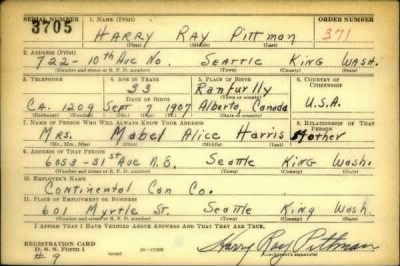 SERIAL NUMBER 1. NAME (Print) ORDER NUMBER
3705 HARRY RAY PITTMAN 371
(First) (Middle) (Last)
2. ADDRESS (Print)
722- 10th Ave No. SEATTLE KING WASH.
(Number and street or R. F. D. number) (Town) (County) (State)
3. TELEPHONE 4. AGE IN YEARS 5. PLACE OF BIRTH 6. COUNTRY OF CITIZENSHIP
33 Ranfurlly
DATE OF BIRTH (Town or county)
CA. 1209 Sept 7 1907 Alberta, Canada U.S.A.
(Exchange) (Number) (Mo.) (Day) (Yr.) (State or country)
7. NAME OF PERSON WHO WILL ALWAYS KNOW YOUR ADDRESS 8. RELATIONSHIP OF THAT PERSON
Mrs. Mabel Alice Harris Mother
(Mr., Mrs., Miss) (First) (Middle) (Last)
9. ADDRESS OF THAT PERSON
6053-31st Ave N.E. Seattle King Wash.
(Number and street or R. F. D. number) (Town) (County) (State)
10. EMPLOYER'S NAME
Continental Can Co.
11. PLACE OF EMPLOYMENT OR BUSINESS
601 Myrtle St. Seattle King Wash
(Number and street or R. F. D. number) (Town) (County) (State)
I AFFIRM THAT I HAVE VERIFIED ABOVE ANSWERS AND THAT THEY ARE TRUE.
REGISTRATION CARD
D. S. S. Form 1 Harry Ray Pittman
#9